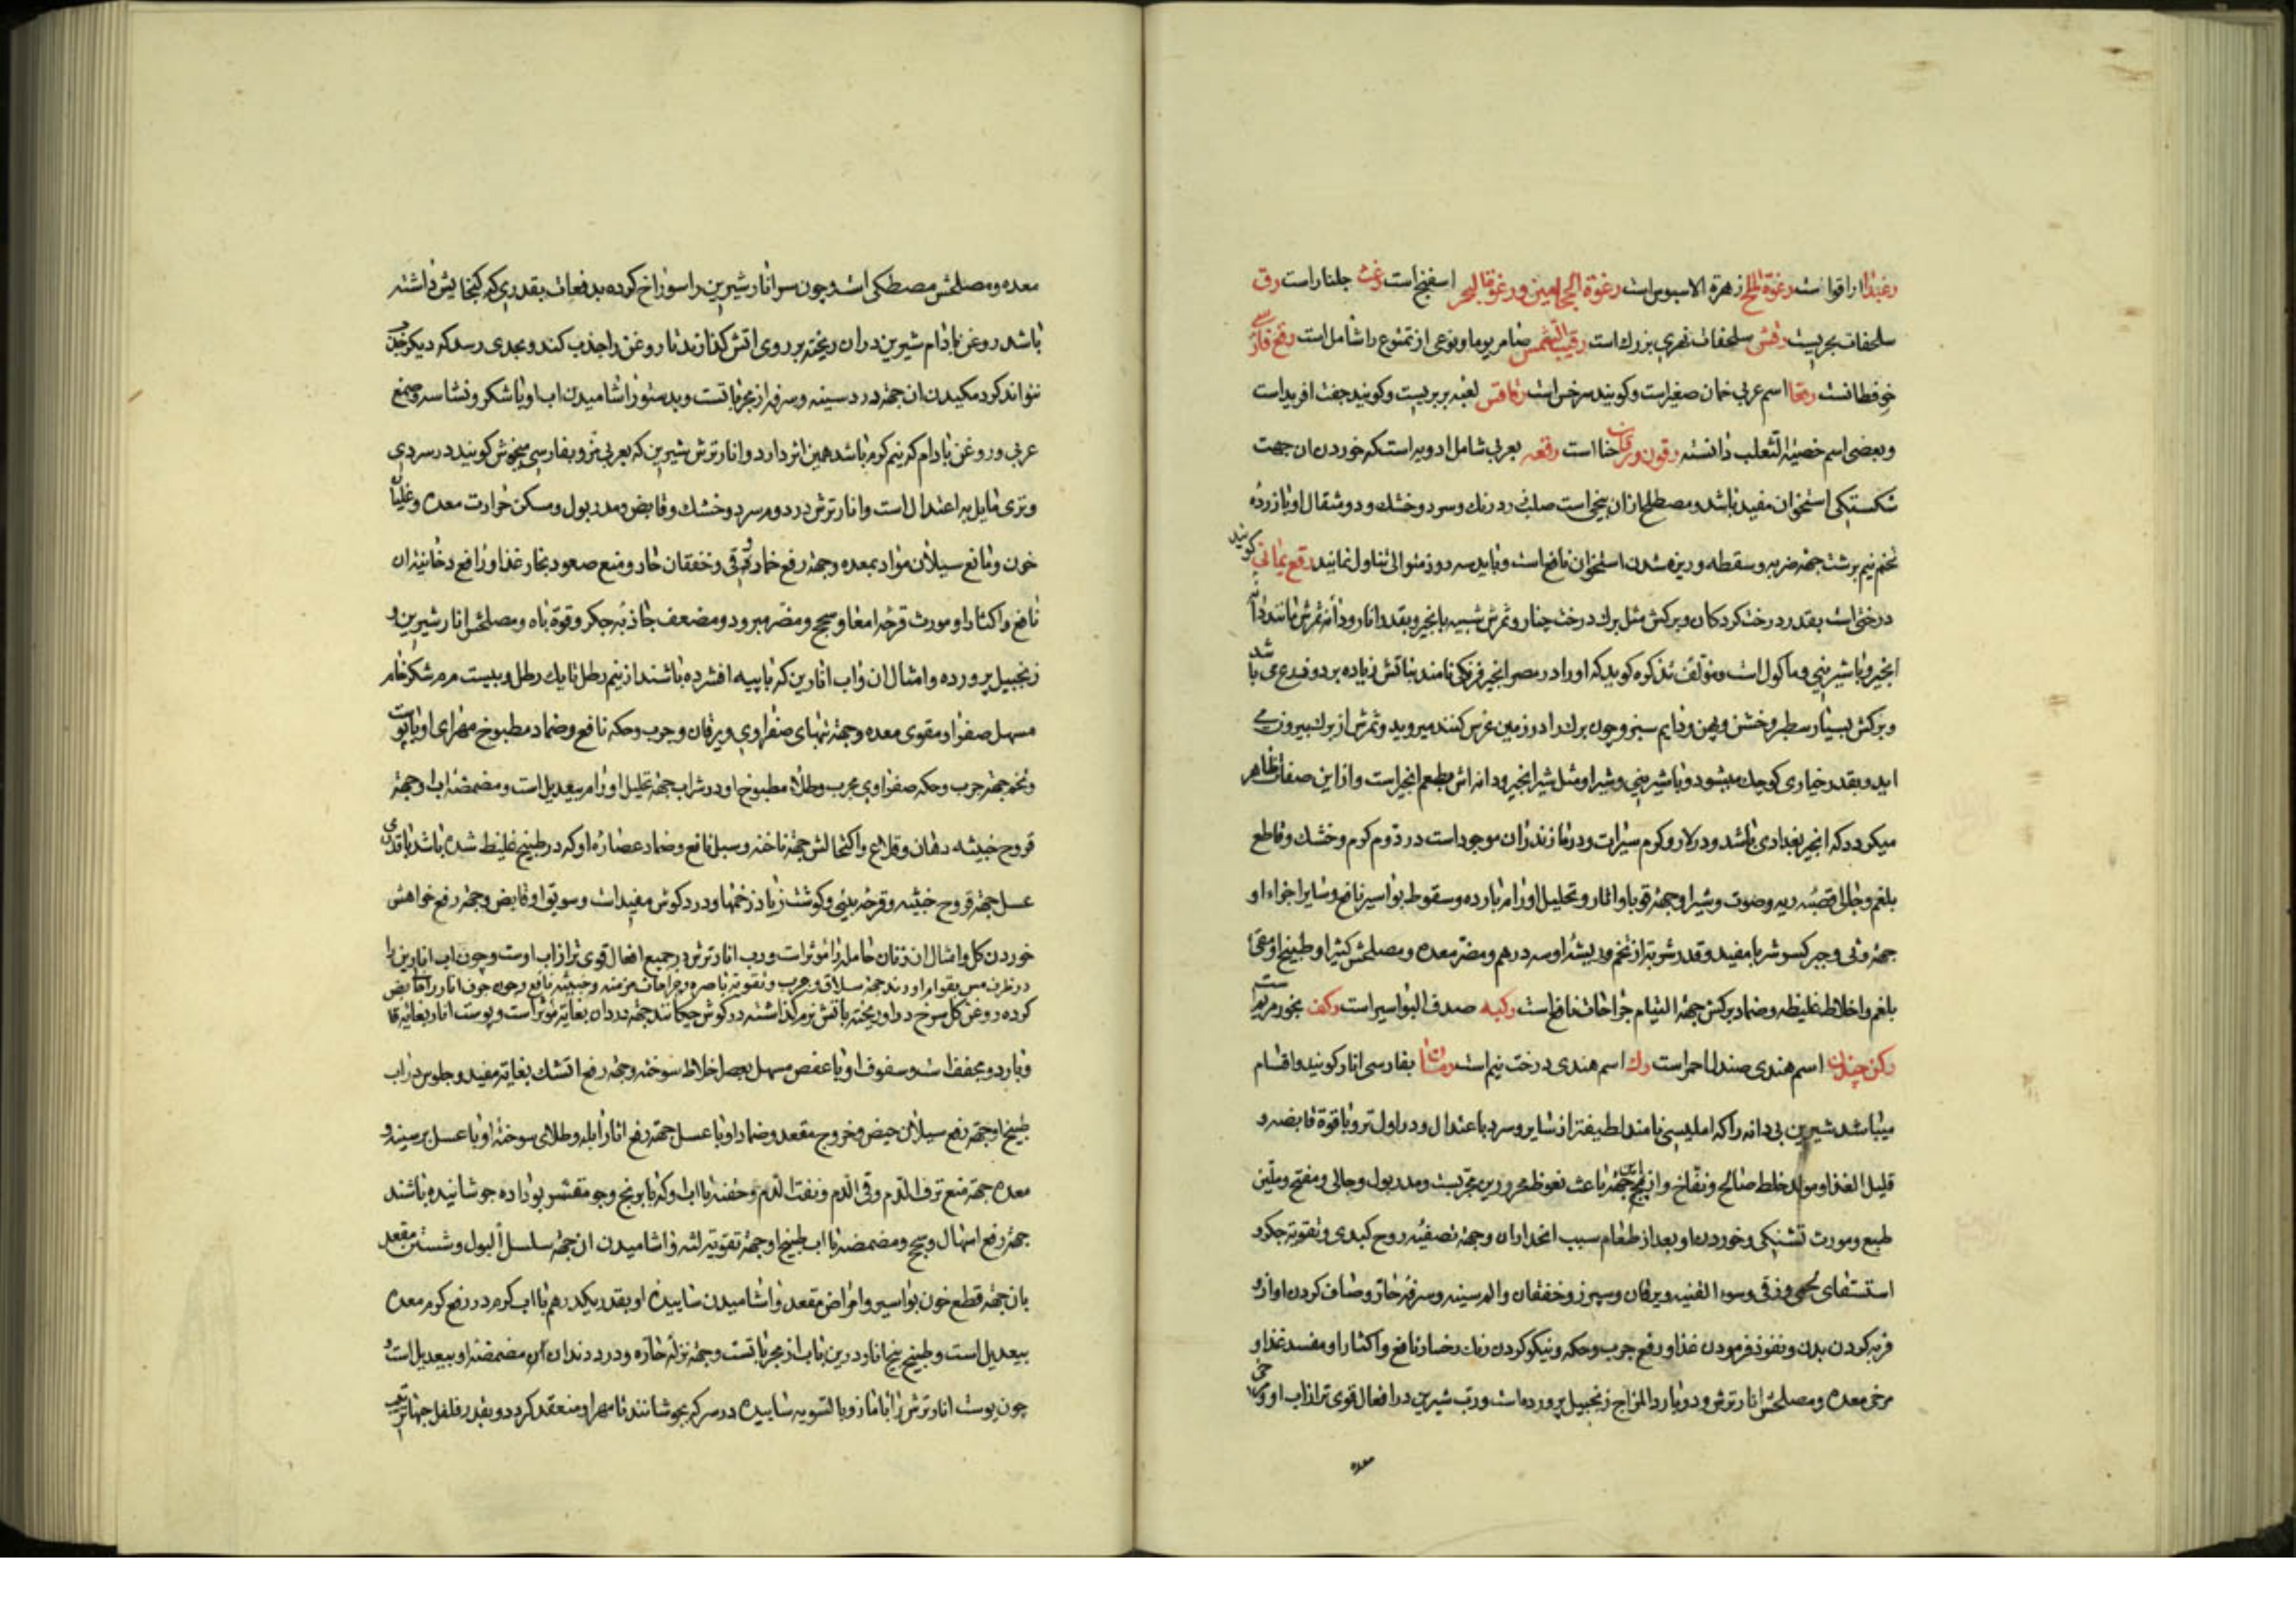 رغیدا اراقوا است رغوة الملح زهرة الاسیوس است رغوة الحجامین ورغوة البحر اسفنج است رغث جلنار است رق
سلحفات بحریست رفش سلحفات نهری بزرک است رقیب الشمس صامریوما و نوعی از یتوع را شامل است رقع فارسی
خوقطانست رقعا اسم عربی خمان صغیر است وکویند سرخس است رقاقس لعبه بربریست وکویند جفت افرید است
وبعضی اسم خصیة الثعلب دانسته رقون و رقان حنا است رقعه بعربی شامل ادویه است که خوردن ان جهت
شکستکی استخوان مفید باشد و مصطلح ازان بیخی است صلب زرد رنک و سرد و خشک و دو مثقال او با زرده
تخم نیم برشت جهة ضربه و سقطه و ریزه شدن استخوان نافع است و باید سه روز متوالی تناول نمایند رقع یمانی کویند
درختی است بقدر درخت کردکان و برکش مثل برک درخت چنار و ثمرش شبیه بانجیر و بقدر انار و دانه ثمرش مانند دانه
انجیر و با شیرینی و ماکول است و مؤلف تذکره کوید که اورا در مصر انجیر فرنکی نامند بناتش زیاده بر دو ذرع می باشد
و برکش بسیار سطبر و خشن و پهن و دایم سبز و چون برک را در زمین غرس کنند میروید و ثمرش از برک بیرون می
اید و بقدر خیاری کوچک میشود و با شیرینی و شیر او مثل شیر انجیر و دانه اش بطعم انجیر است و از این صفات ظاهر
میکردد که انجیر بغدادی باشد و در لار و کرم سیرات و در مازندران موجود است در دوم کرم و خشک و قاطع
بلغم و جلاء قصبه ریه و صوت و شیر او جهة قوبا و اثار و تحلیل اورام بارده و سقوط بواسیر نافع و سایر اجزاء او
جهة وثی و جبر کسر شربا مفید و قدر شربتش از تخم و ریشه او سه درهم و مضر معده و مصلحش کثیرا و طبیخ او مقئ
بلغم و اخلاط غلیظه و ضماد برکش جهة التیام جراحات نافع است رکبه صدف البواسیر است رکف بخور مریم است
رکن چندن اسم هندی صندل احمر است رک اسم هندی درخت نیم است رمان بفارسی انار کویند و اقسام
میباشد شیرین بی دانه را که املیسی نامند لطیفتر از سایر و سرد باعتدال و در اول تر و با قوة قابضه و
قلیل الغذا و مولد خلط صالح و نفاخ و از این جهة باعث نعوظ محرورین مجربست و مدر بول و جالی و مفتح و ملین
طبع و مورث تشنکی و خوردن او بعد از طعام سبب انحدار ان و جهة تصفیه روح کبدی و تقویة جکر و
استسقای لحمی و زقی و سوء القنیه و یرقان و سپرز و خفقان و الم سینه و سرفه حار و صاف کردن اواز و
فربه کردن بدن و نفوذ فرمودن غذا و رفع جرب و حکه و نیکو کردن رنک رخسار نافع و اکثار او مفسد غذا و
مرخی معده و مصلحش انار ترش و در بارد المزاج زنجبیل پرورده است و رب شیرین در افعال قوی تر از اب او و مرخی
معده
معده و مصلحش مصطکی است و چون سر انار شیرین را سوراخ کرده بدفعات بقدری که کنجایش داشته
باشد روغن بادام شیرین دران ریخته بر روی اتش کذارند تا روغن را جذب کند و بحدی رسد که دیکر جذب
نتواند کرد مکیدن ان جهة درد سینه و سرفه از مجرباتست و بدستور اشامیدن اب او با شکر و نشاسه و صمغ
عربی و روغن بادام که نیم کرم باشد همین اثر دارد و انار ترش شیرین که بعربی مز و بفارسی میخوش کویند در سردی
و تری مایل به اعتدال است و انار ترش در دوم سرد و خشک و قابض و مدر بول و مسکن حرارت معده و غلیان
خون و مانع سیلان مواد بمعده و جهة رفع خمار و قی و خفقان حار و منع صعود بخار غذا و رافع دخانیة ان
نافع و اکثار او مورث قرحه امعا و سحج و مضر مبرود و مضعف جاذبه جکر و قوة باه و مصلحش انار شیرین و
زنجبیل پرورده و امثال ان و اب انارین که با پیه افشرده باشند از نیم رطل تا یک رطل و بیست درم شکر خام
مسهل صفرا و مقوی معده و جهة تبهای صفراوی و یرقان و جرب و حکه نافع و ضماد مطبوخ مهرای او با پوست
و تخم جهة جرب و حکه صفراوی مجرب و طلاء مطبوخ او در شراب جهة تحلیل اورام بیعدیل است و مضمضه اب او جهة
قروح خبیثه دهان و قلاع و اکتحالش جهة ناخنه و سبل نافع و ضماد عصاره او که در طبیخ غلیظ شده باشد با قدری
عسل جهة قروح خبیثه و قرحه بینی و کوشت زیاد زخمها و درد کوش مفید است و سویق او قابض و جهة رفع خواهش
خوردن کل و امثال ان زنان حامله را مؤثر است و رب انار ترش در جمیع افعال قوی تر از اب اوست و چون اب انارین را
در ظرف مس بقوام اورند جهة سلاق و جرب و تقویة باصره و جراحات مزمنه و خبیثه نافع و چون جوف انار را قابض
کرده روغن کل سرخ در او ریخته باتش نرم کذاشته در کوش چکانند جهة درد ان بغایة مؤثر است و پوست انار بغایة قا
و بارد و مجفف است و سفوف او با عفص مسهل بعصر اخلاط سوخته و جهة رفع اتشک بغایة مفید و جلوس در اب
طبیخ او جهة رفع سیلان حیض و خروج مقعد و ضماد او با عسل جهة رفع اثار ابله و طلای سوخته او با عسل بر سینه و
معده جهة منع نزف الدم و قی الدم و نفث الدم و حقنه با اب او که با برنج و جو مقشر بو داده جوشانیده باشند
جهة رفع اسهال و سحج و مضمضه با اب طبیخ او جهة تقویة لثه و اشامیدن ان جهة سلسل البول و شستن مقعد
بان جهة قطع خون بواسیر و امراض مقعد و اشامیدن ساییده او بقدر یکدرهم با اب کرم در رفع کرم معده
بیعدیل است و طبیخ بیخ انار در این باب از مجرباتست و جهة نزله حاره و درد دندان ان مضمضه او بیعدیل است و
چون پوست انار ترش را با مازو بالسویه ساییده در سرکه بجوشانند تا مهرا و منعقد کردد و بقدر فلفل حبها ترتیب